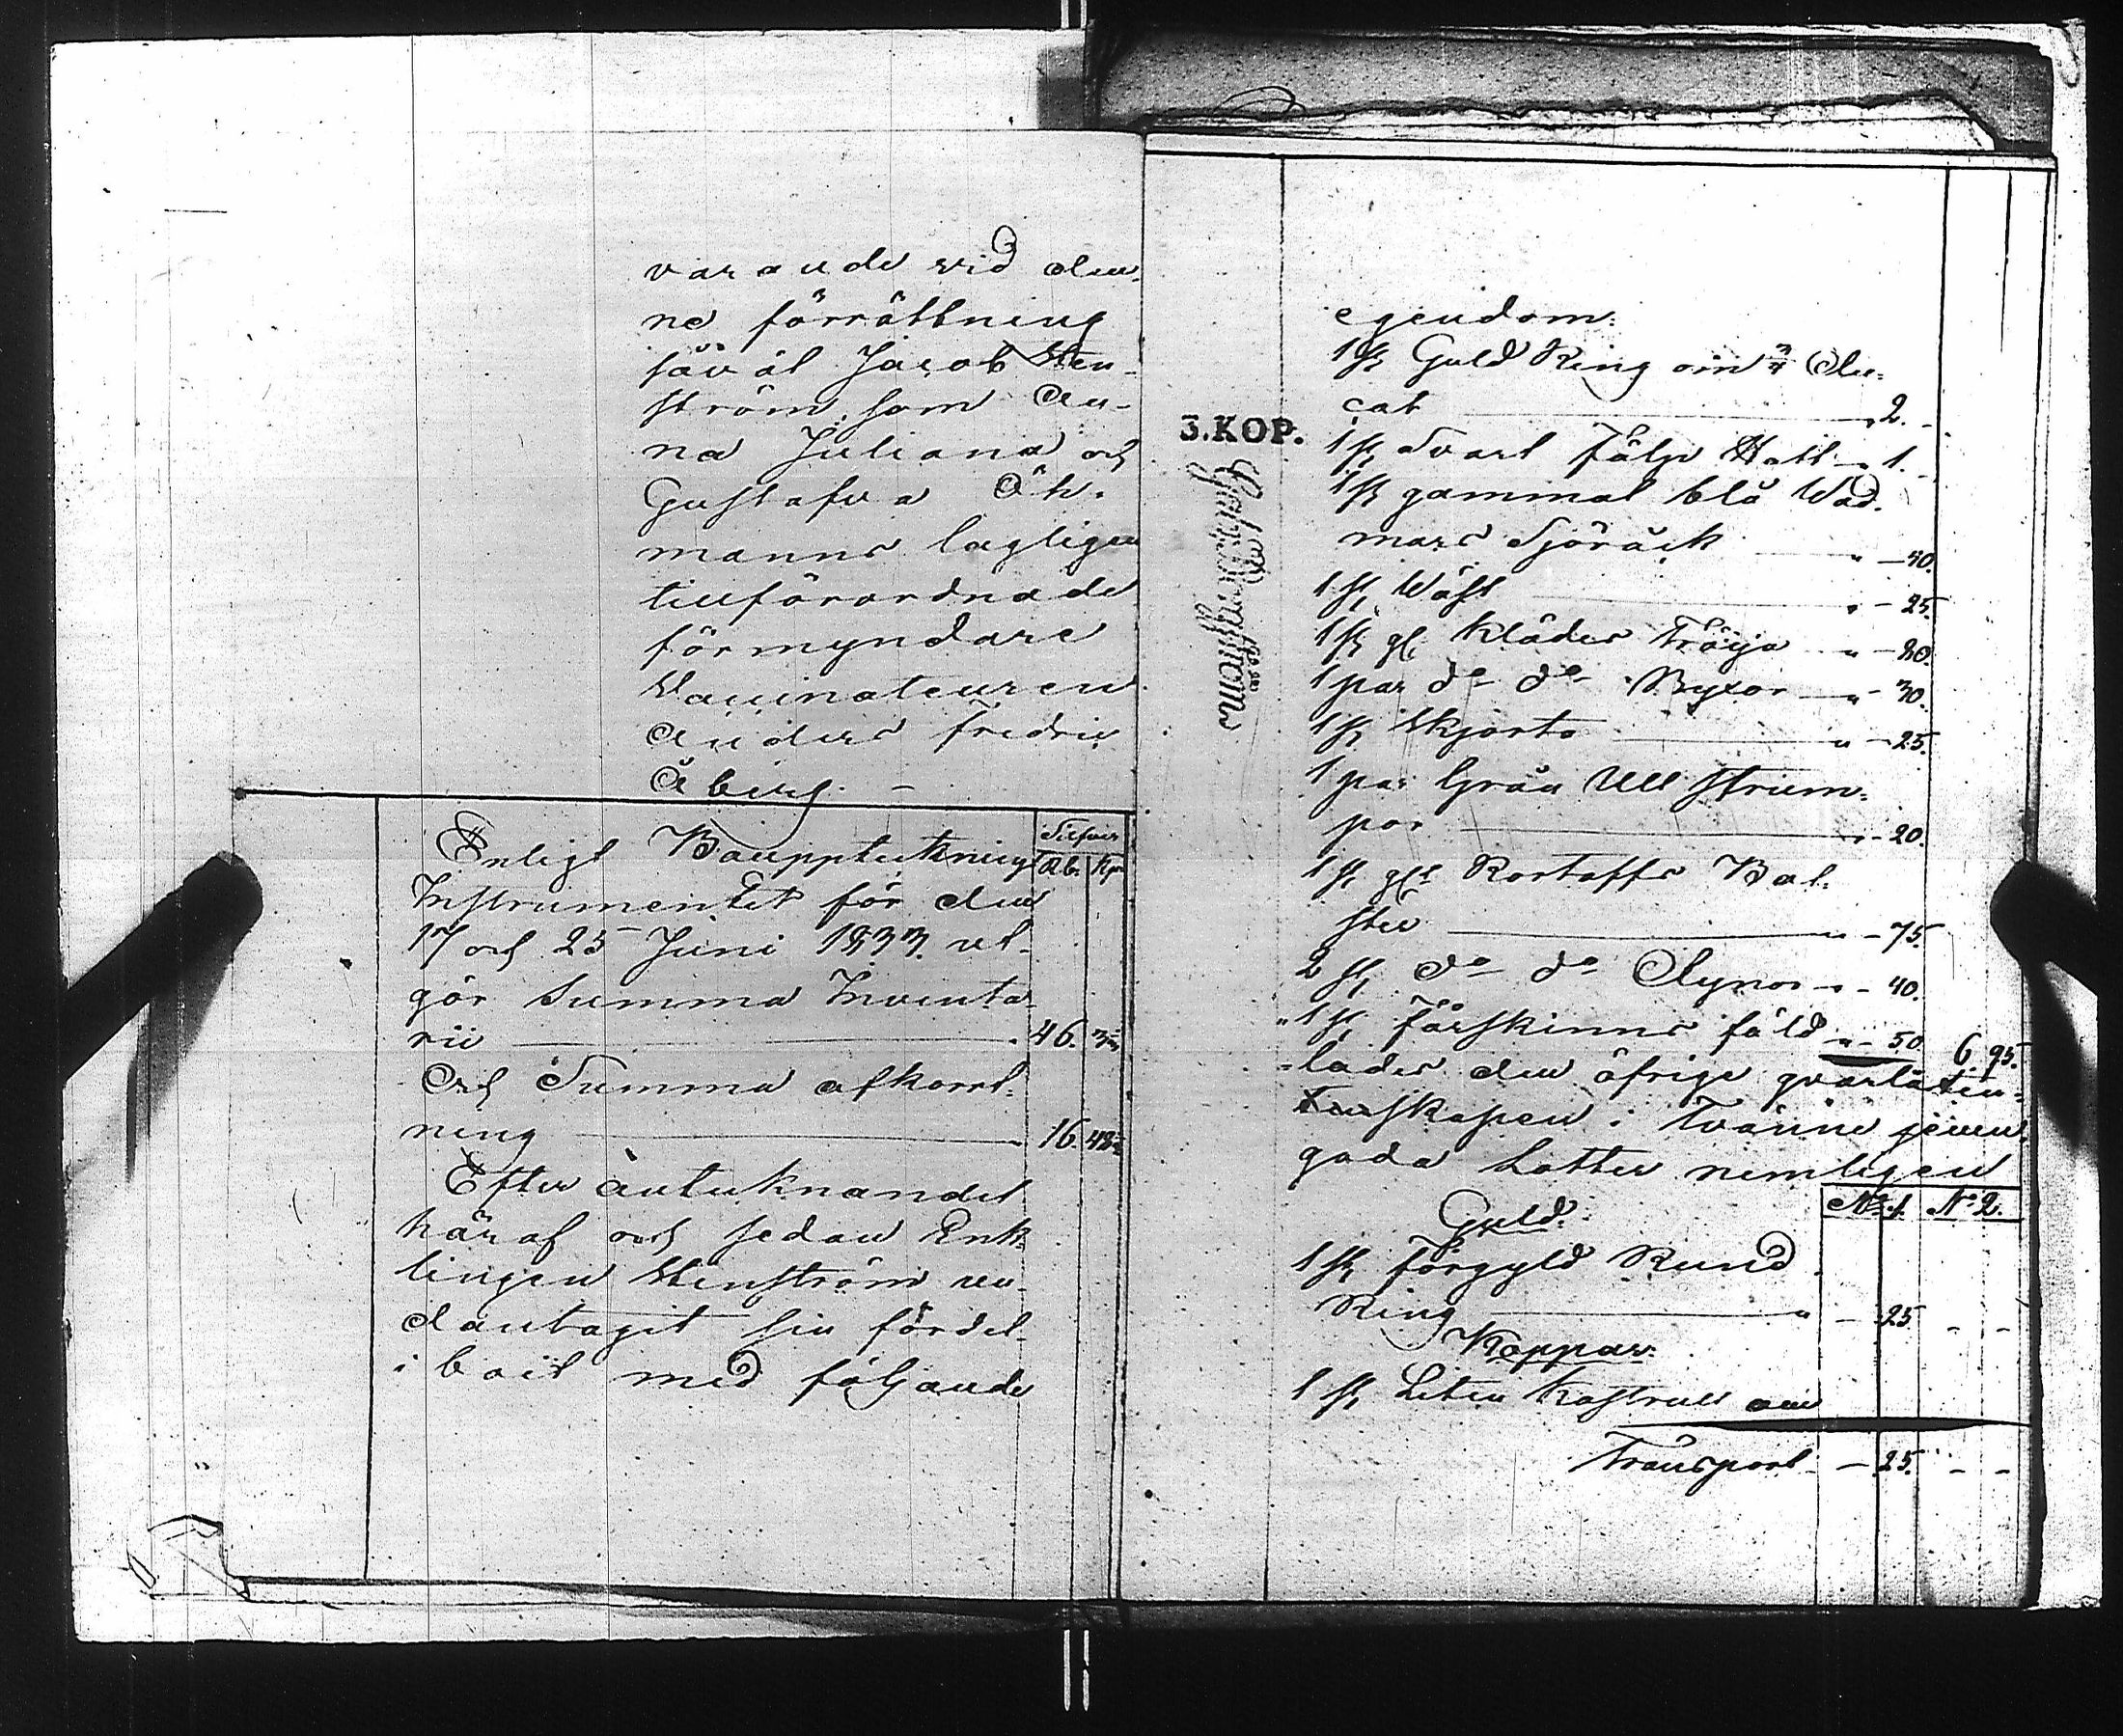 varande vid den-
na förrättning
såväl Jacob Sten-
ström, som An-
na Juliana och
Gustafva Öh-
manns lagligen
tillförordnade
förmyndare
Vaccinateuren
Anders Fredric
Åberg. –
Silfver
Enligt Bouppteknings Rb. Kpr
Instrumentet för den
17 och 25 Juni 1833. ut-
gör Summa Inventa-
rii 46.
Och Summa afkort-
ning 16. 48
Efter afteknandet
häraf och sedan Enk-
lingen Stenström un-
dantagit sin fördel
i boit med följande
3.KOP.
egendom:
1 st Guld Ring om 3/4 Du-
cat 2. -
1 st Svart Fälp Hatt " 1. -
1 st gammal blå Wad-
mars Sjöräck " - 40.
1 st Wäst " - 25.
1 st gl. Klädes Tröija " - 80.
1 par do do Byxor " - 30.
1 st Skjorta " - 25.
1 par Gråa Ull strum-
por " - 20.
1 st gl. Kartoffs Bol-
ster " - 75.
2 st do do Dynor " - 40.
1 st Fårskinns fäld " - 50. 6 95.
lades den öfrige qvarlåten-
skapen i Tvänne jemn-
goda Lotter nemligen
No 1. No 2.
Guld.
1 st förgyld Rund
Ring " - 25 - -
Koppar.
1 st Liten Kastrull om
Transport - 25. - -